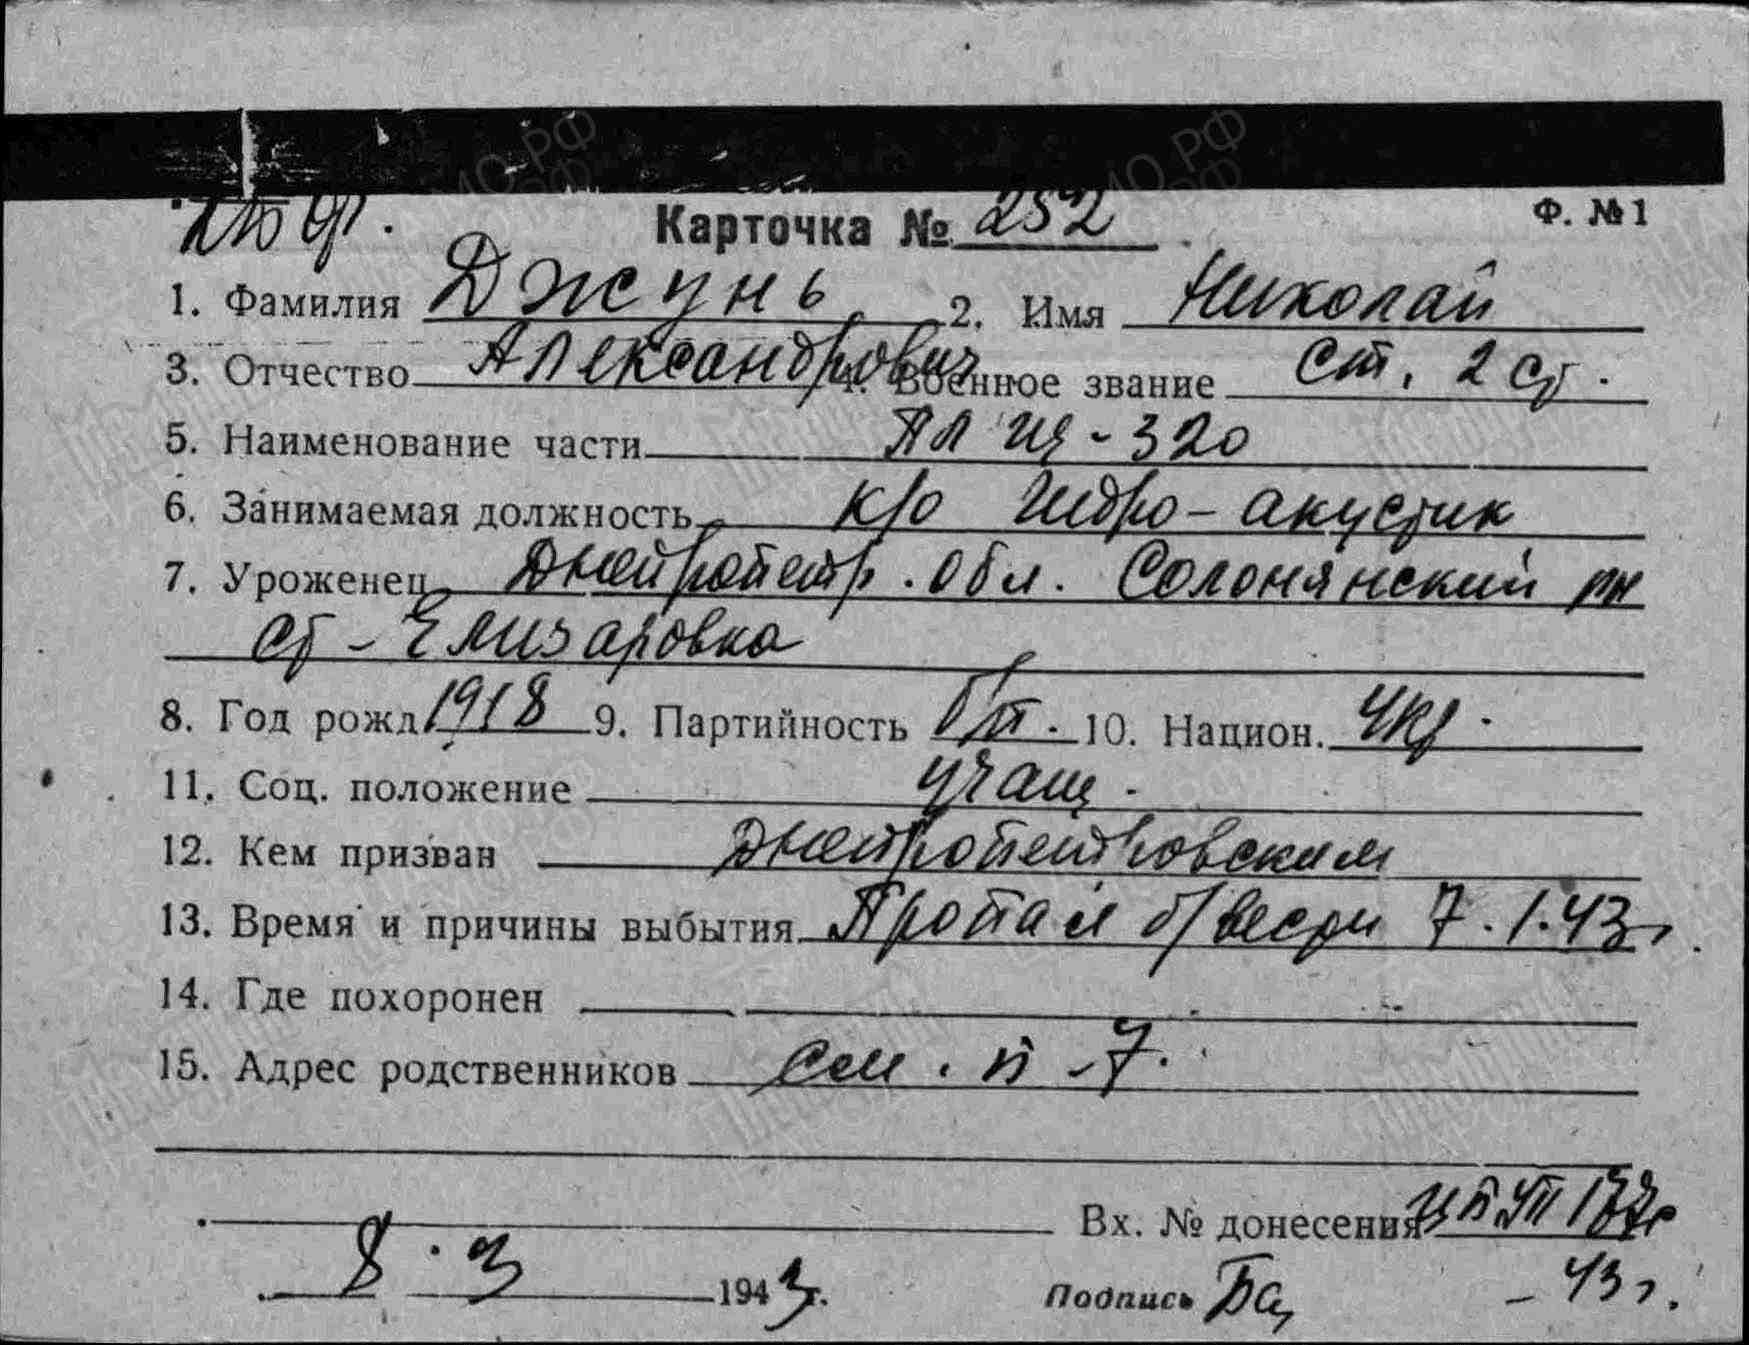 КБФ.
Карточка № 252
Ф. № 1
1. Фамилия Джунь 2. Имя Николай
3. Отчество Александрович 4. Военное звание ст. 2 ст.
5. Наименование части ПЛ Щ-320
6. Занимаемая должность к/о гидро-акустик
7. Уроженец Днепропетр. обл. Солонянский рн
ст-Елизаровка
8. Год рожд. 1918 9. Партийность б/п. 10. Национ. Укр.
11. Соц. положение учащ.
12. Кем призван Днепропетровским
13. Время и причины выбытия Пропал б/вести 7.1.43г.
14. Где похоронен
15. Адрес родственников см. п-7.
Вх. № донесения
8.3 1943г. Подпись -43г.